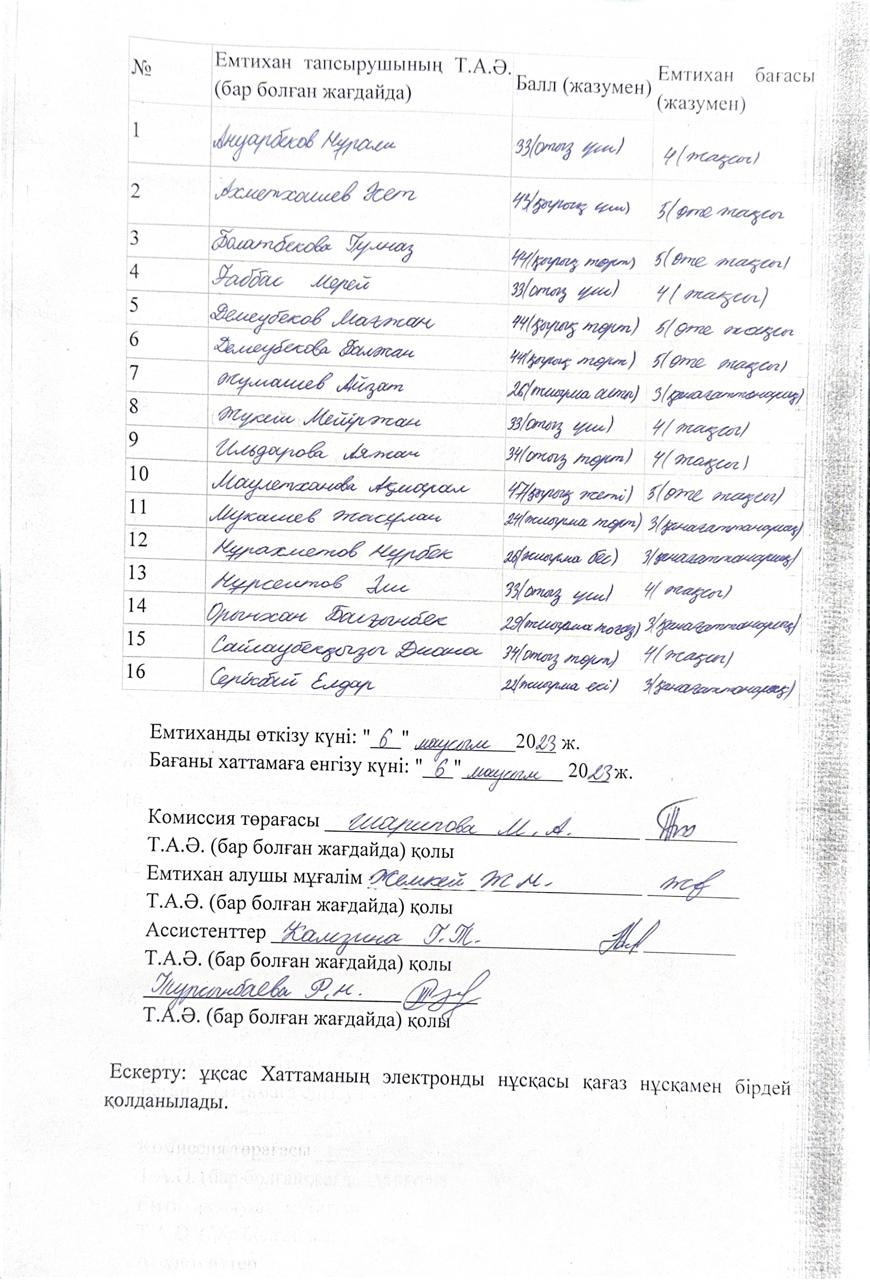 № Емтихан тапсырушының Т.А.Ә. Балл (жазумен) Емтихан бағасы
(бар болған жағдайда) (жазумен)
1 Ануарбеков Нұрали 33(отыз үш) 4(жақсы)
2 Ахметхашев 43(қырық үш) 5(өте жақсы
3 Болатбекова Гүлназ 44(қырық төрт) 5(өте жақсы)
4 Ғаббас Мерей 33(отыз үш) 4(жақсы)
5 Демеубеков Мағжан 44(қырық төрт) 5(өте жақсы
6 Демеубекова Балжан 44(қырық төрт) 5(өте жақсы)
7 Жумашев Айзат 26(жиырма алты) 3(қанағаттанарлық)
8 Жүкеш Мейіржан 33(отыз үш) 4(жақсы)
9 Ильдарова Аяжан 34(отыз төрт) 4(жақсы)
10 Маулетханова Ақмарал 47(қырық жеті) 5(өте жақсы)
11 Мукашев Жасұлан 24(жиырма төрт) 3(қанағаттанарлық)
12 Нұрахметов Нұрбек 25(жиырма бес) 3(қанағаттанарлық)
13 Нұрсеитов Әли 33(отыз үш) 4(жақсы)
14 Орынхан Бағынбек 29(жиырма тоғыз) 3(қанағаттанарлық)
15 Сайлаубекқызы Диана 34(отыз төрт) 4(жақсы)
16 Серікбай Елдар 22(жиырма екі) 3(қанағаттанарлық)
Емтиханды өткізу күні: "6" маусым 2023 ж.
Бағаны хаттамаға енгізу күні: "6" маусым 2023 ж.
Комиссия төрағасы Шарипова М.А.
Т.А.Ә. (бар болған жағдайда) қолы
Емтихан алушы мұғалім Жемкей Ж.М.
Т.А.Ә. (бар болған жағдайда) қолы
Ассистенттер Камзина Г.Т.
Т.А.Ә. (бар болған жағдайда) қолы
Турсынбаева Р.Н.
Т.А.Ә. (бар болған жағдайда) қолы
Ескерту: ұқсас Хаттаманың электронды нұсқасы қағаз нұсқамен бірдей
қолданылады.